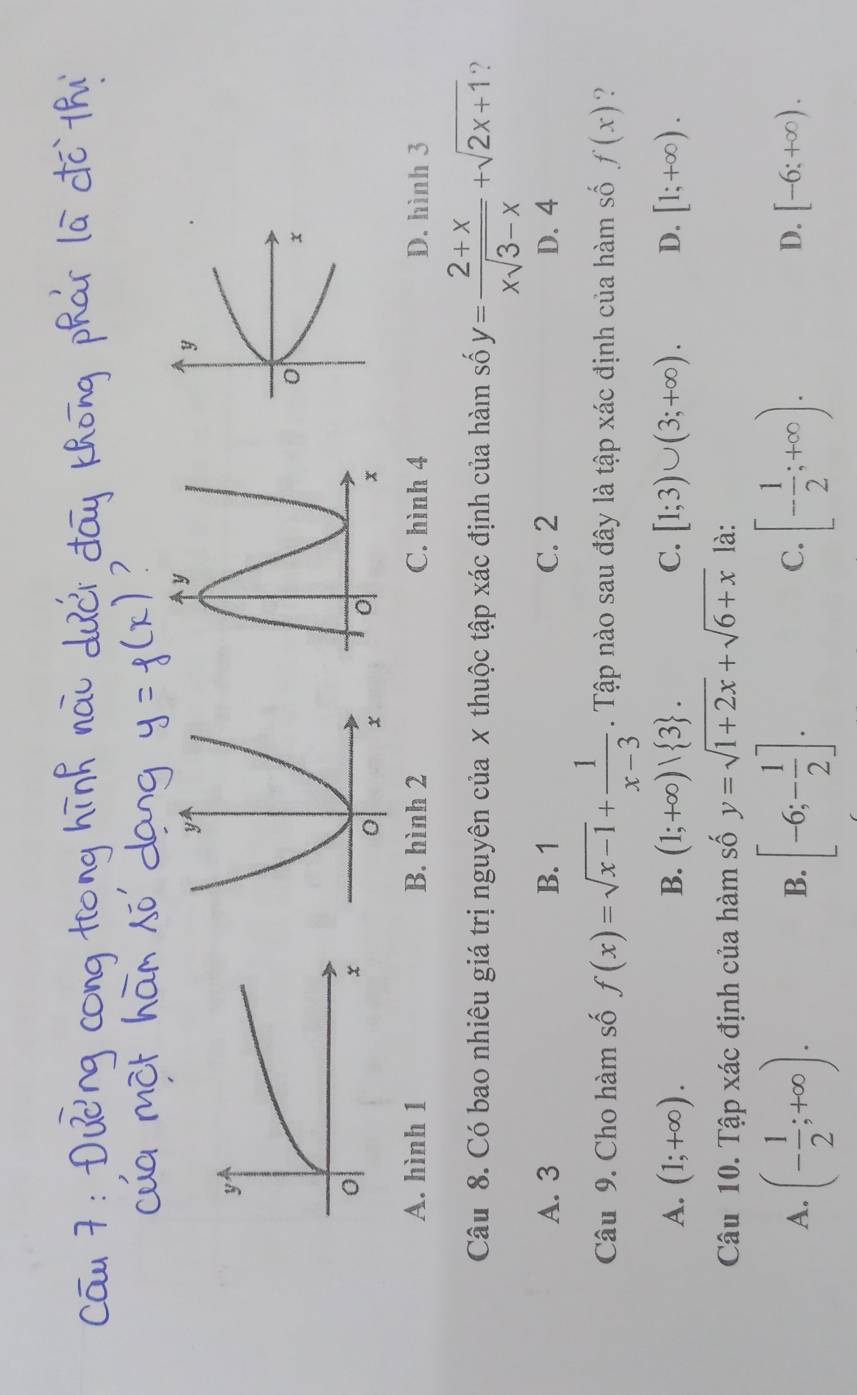 Câu 7: Đường cong trong hình nào dưới đây không phải là đồ thị
của một hàm số dạng y = f(x)?
y y y y
O x O x O x O x
A. hình 1 B. hình 2 C. hình 4 D. hình 3
Câu 8. Có bao nhiêu giá trị nguyên của x thuộc tập xác định của hàm số y = \frac{2+x}{x\sqrt{3-x}} + \sqrt{2x+1}?
A. 3 B. 1 C. 2 D. 4
Câu 9. Cho hàm số f(x) = \sqrt{x-1} + \frac{1}{x-3}. Tập nào sau đây là tập xác định của hàm số f(x)?
A. (1;+∞). B. (1;+∞)\{3}. C. [1;3)∪(3;+∞). D. [1;+∞).
Câu 10. Tập xác định của hàm số y = \sqrt{1+2x} + \sqrt{6+x} là:
A. (-\frac{1}{2};+∞). B. [-6;-\frac{1}{2}]. C. [-\frac{1}{2};+∞). D. [-6;+∞).